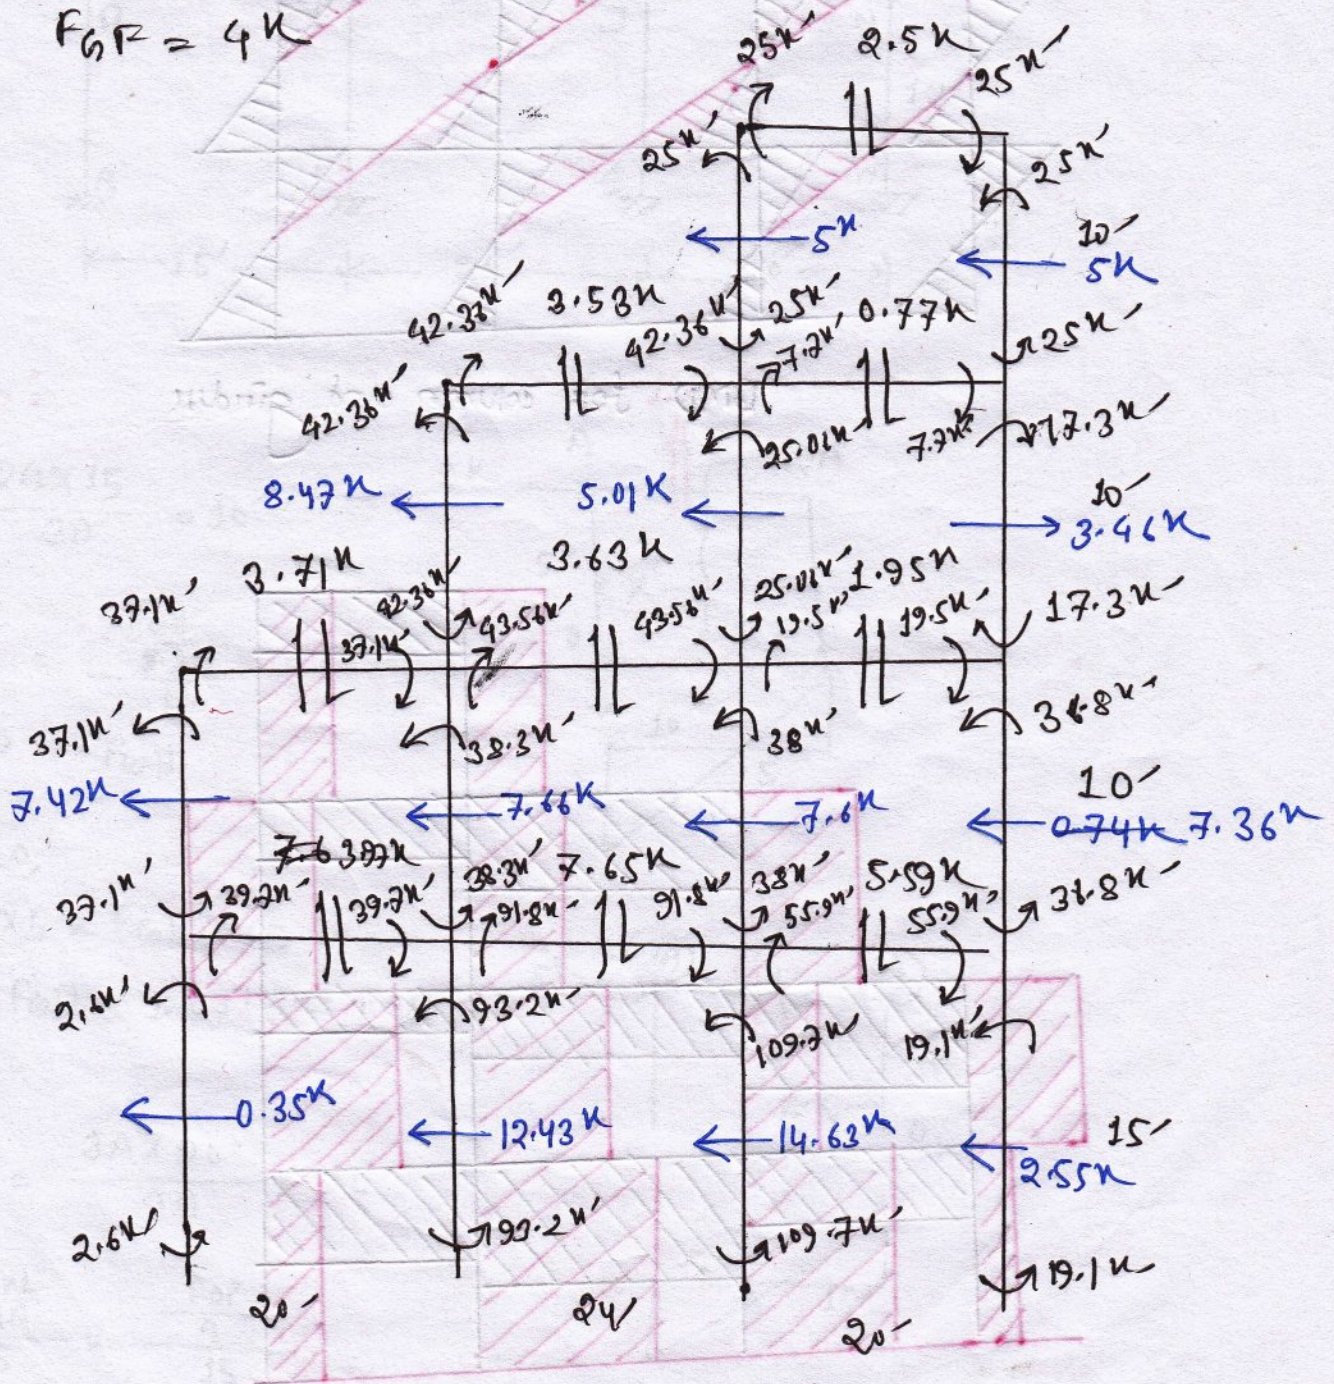 FGF = 4K
25K' 2.5K 25K'
25K' 25K'
5K 10'
5K
42.37K' 3.53K 42.36K' 25K' 0.77K 25K'
7.7K'
42.36K' 25.06K' 7.7K' 17.3K'
8.47K 5.01K 10'
3.46K
37.1K' 3.71K 42.36K' 3.63K 25.06K' 1.95K 17.3K'
37.1K' 43.56K' 43.56K' 19.5K' 19.5K'
37.1K' 38.3K' 38K' 36.8K'
7.42K 7.66K 7.6K 10'
0.74K 7.36K
7.6 3.97K 38.3K' 7.65K 38K' 5.59K 36.8K'
37.1K' 39.7K' 39.7K' 91.8K' 91.8K' 55.9K' 55.9K'
2.6K' 93.2K' 109.7K' 19.1K'
0.35K 12.43K 14.63K 15'
2.55K
2.6K' 93.2K' 109.7K' 19.1K'
20' 24' 20'